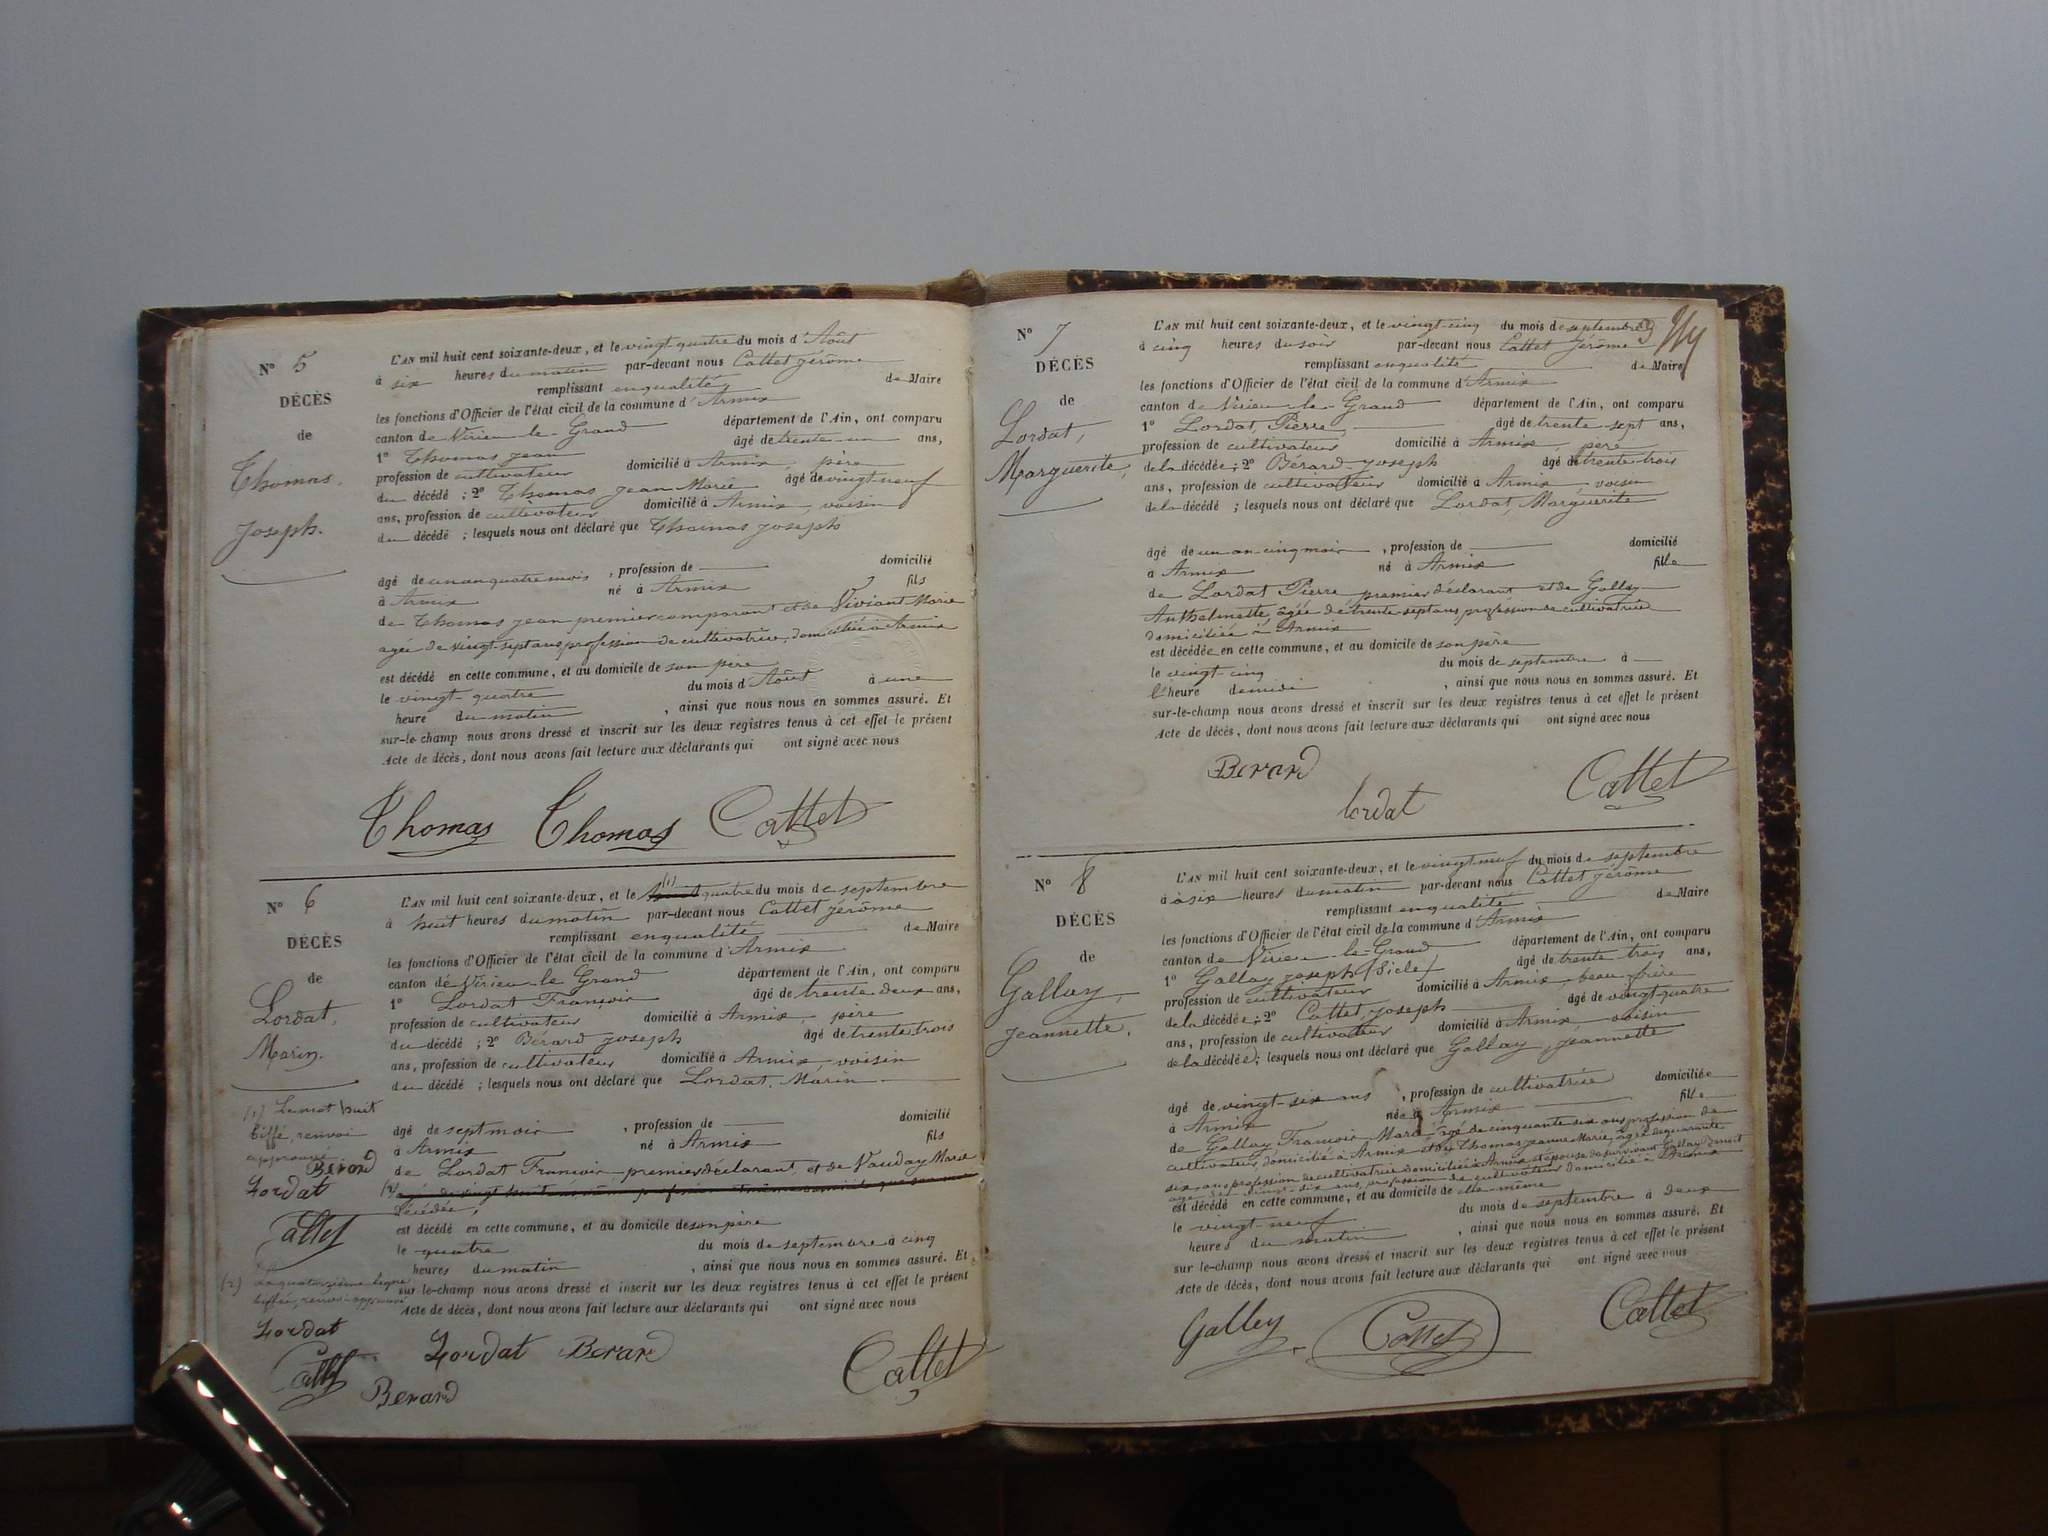 N° 5
DÉCÈS
de
Thomas,
Joseph.
L'AN mil huit cent soixante-deux, et le vingt-quatre du mois d'Août
à six heures du matin par-devant nous Cattet jérôme
remplissant en qualité de Maire
les fonctions d'Officier de l'état civil de la commune d'Armix
canton de Virieu-le-Grand département de l'Ain, ont comparu
1° Thomas jean âgé de trente-un ans,
profession de cultivateur domicilié à Armix, père
du décédé ; 2° Thomas jean Marie âgé de vingt-neuf
ans, profession de cultivateur domicilié à Armix, voisin
du décédé ; lesquels nous ont déclaré que Thomas joseph
âgé de un an quatre mois , profession de domicilié
à Armix né à Armix fils
de Thomas jean premier comparant et de Viviant Marie
agée de vingt-sept ans profession de cultivatrice, domiciliée à Armix
est décédé en cette commune, et au domicile de son père
le vingt-quatre du mois d'Août à une
heure du matin , ainsi que nous nous en sommes assuré. Et
sur-le-champ nous avons dressé et inscrit sur les deux registres tenus à cet effet le présent
Acte de décès, dont nous avons fait lecture aux déclarants qui ont signé avec nous
Thomas Thomas Cattet
N° 6
DÉCÈS
de
Lordat,
Marin.
L'AN mil huit cent soixante-deux, et le (1) huit quatre du mois de septembre
à huit heures du matin par-devant nous Cattet jérôme
remplissant en qualité de Maire
les fonctions d'Officier de l'état civil de la commune d'Armix
canton de Virieu-le Grand département de l'Ain, ont comparu
1° Lordat François âgé de trente deux ans,
profession de cultivateur domicilié à Armix, père
du décédé ; 2° Bérard joseph âgé de trente trois
ans, profession de cultivateur domicilié à Armix, voisin
du décédé ; lesquels nous ont déclaré que Lordat, Marin
âgé de sept mois , profession de domicilié
à Armix né à Armix fils
de Lordat François premier déclarant et de Vauday Marie
(2)
décédée,
est décédé en cette commune, et au domicile de son père
le quatre du mois de septembre à cinq
heures du matin , ainsi que nous nous en sommes assuré. Et
sur le-champ nous avons dressé et inscrit sur les deux registres tenus à cet effet le présent
Acte de décès, dont nous avons fait lecture aux déclarants qui ont signé avec nous
(1) Le mot huit
biffé, renvoi
approuvé
Berard
Lordat
Cattet
(2) La quatorzième ligne
biffée, renvoi approuvé
Lordat
Cattet
Berard
Lordat Berard Cattet
N° 7
DÉCÈS
de
Lordat,
Marguerite,
L'AN mil huit cent soixante-deux, et le vingt-cinq du mois de septembre
à cinq heures du soir par-devant nous Cattet Jérôme
remplissant en qualité de Maire
les fonctions d'Officier de l'état civil de la commune d'Armix
canton de Virieu-le-Grand département de l'Ain, ont comparu
1° Lordat, Pierre, âgé de trente-sept ans,
profession de cultivateur domicilié à Armix, père
de la décédée ; 2° Bérard joseph âgé de trente-trois
ans, profession de cultivateur domicilié à Armix, voisin
de la décédé ; lesquels nous ont déclaré que Lordat, Marguerite
âgé de un an cinq mois , profession de domicilié
à Armix né à Armix fille
de Lordat Pierre premier déclarant et de Gallay
Anthelmette, âgée de trente sept ans, profession de cultivatrice
domiciliée à Armix
est décédée en cette commune, et au domicile de son père
le vingt-cinq du mois de septembre à
l'heure de midi , ainsi que nous nous en sommes assuré. Et
sur-le-champ nous avons dressé et inscrit sur les deux registres tenus à cet effet le présent
Acte de décès, dont nous avons fait lecture aux déclarants qui ont signé avec nous
Berard
lordat
Cattet
N° 8
DÉCÈS
de
Gallay,
Jeannette.
L'AN mil huit cent soixante-deux, et le vingt-neuf du mois de septembre
à à six heures du matin par-devant nous Cattet jérôme
remplissant en qualité de Maire
les fonctions d'Officier de l'état civil de la commune d'Armix
canton de Virieu-le-Grand département de l'Ain, ont comparu
1° Gallay joseph âgé de trente-trois ans,
profession de cultivateur domicilié à Armix, beau-frère
de la décédée ; 2° Cattet, joseph âgé de vingt-quatre
ans, profession de cultivateur domicilié à Armix, voisin
de la décédée ; lesquels nous ont déclaré que Gallay, jeannette
âgé de vingt-six ans , profession de cultivatrice domiciliée
à Armix née à Armix fille
de Gallay François Mara âgé de cinquante six ans profession de
cultivateur, domicilié à Armix et de Thomas jeanne Marie, âgée de quarante
six ans profession de cultivatrice domiciliée à Armix, épouse du survivant Gallay Benoit
agé de vingt-six ans, profession de cultivateur domicilié à Armix
est décédé en cette commune, et au domicile de elle-même
le vingt-neuf du mois de septembre à deux
heures du matin , ainsi que nous nous en sommes assuré. Et
sur-le-champ nous avons dressé et inscrit sur les deux registres tenus à cet effet le présent
Acte de décès, dont nous avons fait lecture aux déclarants qui ont signé avec nous
Galley Cattet Cattet